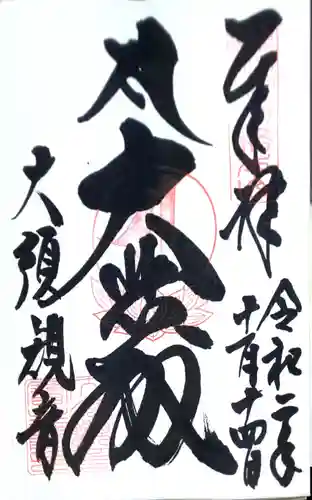 奉拝
令和二年
十一月十四日
大悲殿
大須観音